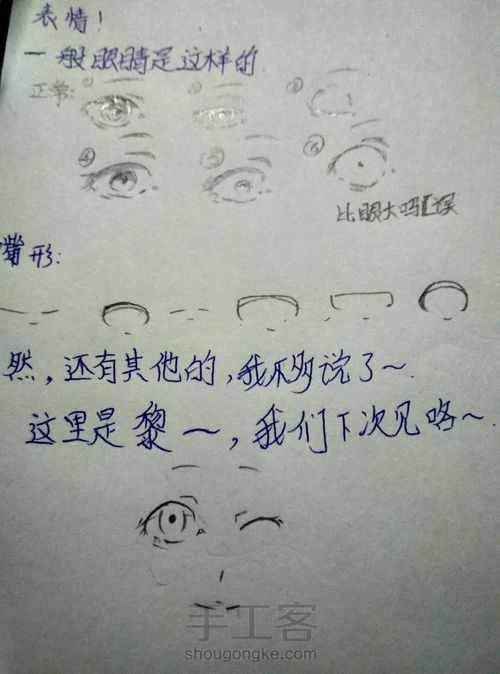 表情！
一般眼睛是这样的
正常：① ② ③
④ ⑤ ⑥
比眼大吗【误
嘴形：
然，还有其他的，我不多说了～
这里是黎一，我们下次见咯～
手工客
shougongke.com